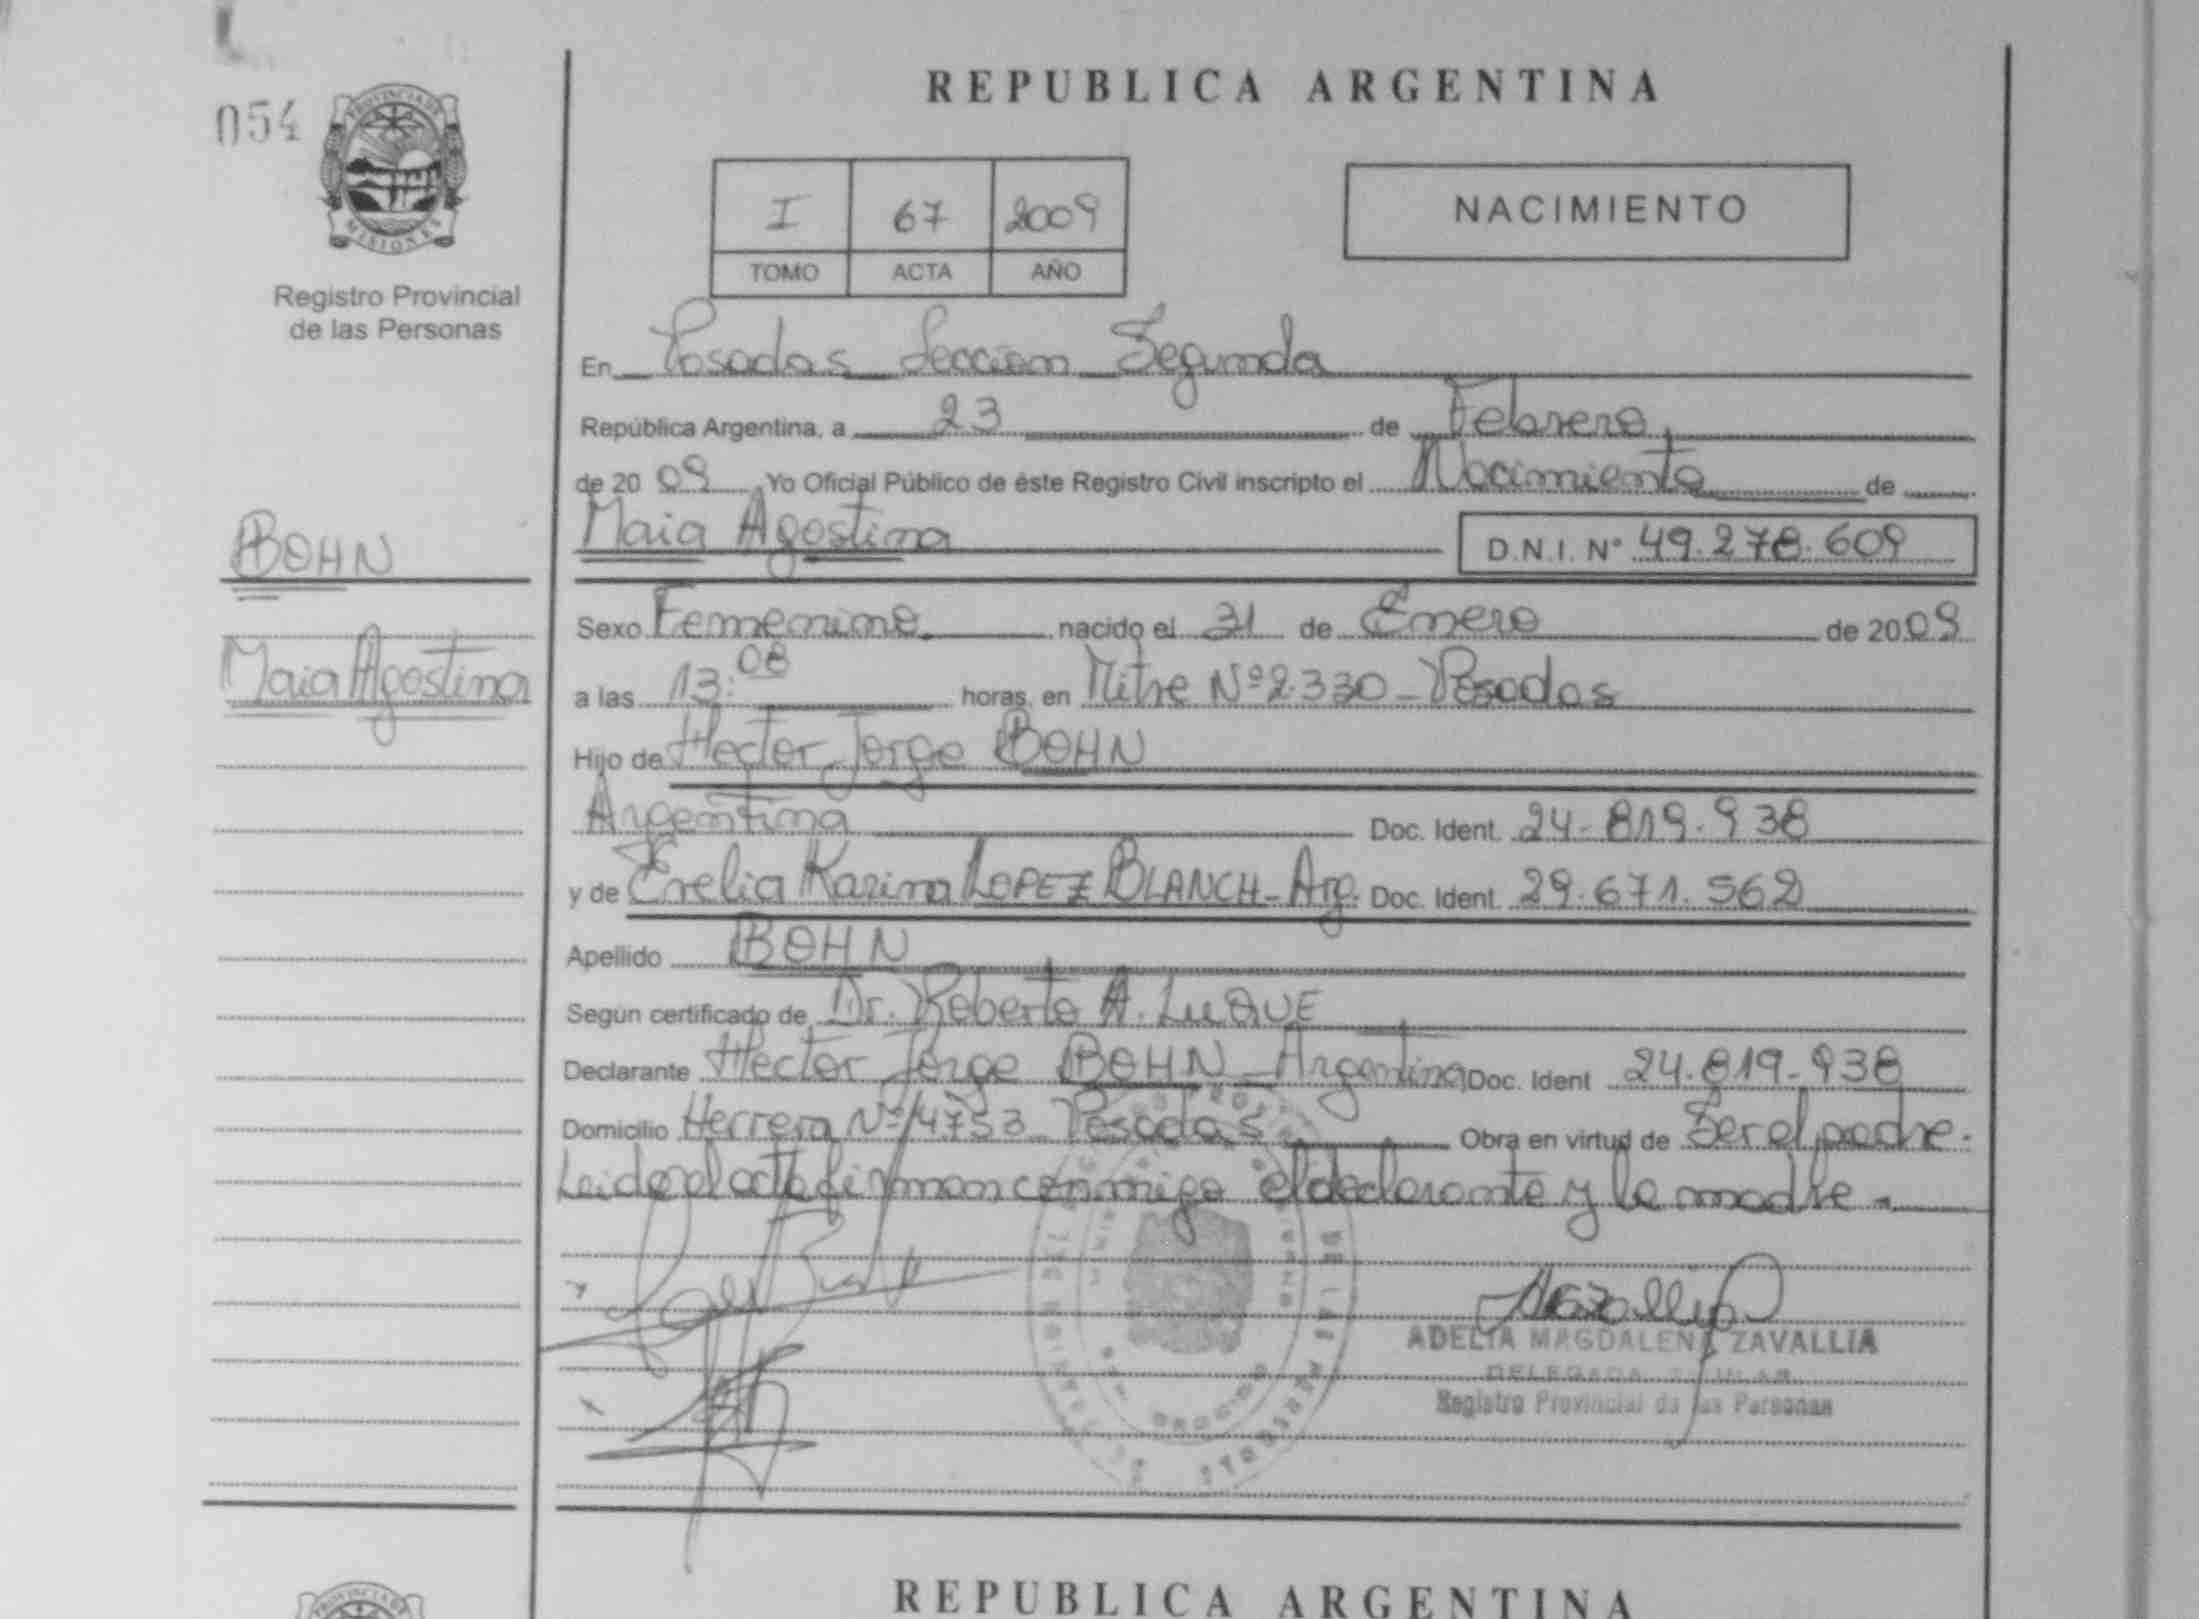 REPUBLICA ARGENTINA
054
PROVINCIA DE
MISIONES
Registro Provincial
de las Personas
I 67 2009
TOMO ACTA AÑO
NACIMIENTO
En Posadas Seccion Segunda
República Argentina, a 23 de Febrero,
de 2009 Yo Oficial Público de éste Registro Civil inscripto el Nacimiento de
Maia Agostina D.N.I. Nº 49.278.609
BOHN
Maia Agostina
Sexo Femenino. nacido el 31 de Enero de 2009
a las 13:08 horas, en Mitre Nº 2.330 - Posadas
Hijo de Hector Jorge BOHN
Argentino Doc. Ident. 24.819.938
y de Karina LOPEZ BLANCH - Arg. Doc. Ident. 29.671.562
Apellido BOHN
Según certificado de Dr. Roberto A. LUQUE
Declarante Hector Jorge BOHN - Argentino Doc. Ident 24.819.938
Domicilio Herrera Nº 4753 Posadas Obra en virtud de Ser el padre.
Leida el acta firman conmigo el declarante y la madre.
ADELIA MAGDALENA ZAVALLIA
DELEGADA TITULAR
Registro Provincial de las Personas
REPUBLICA ARGENTINA
PROVINCIA DE